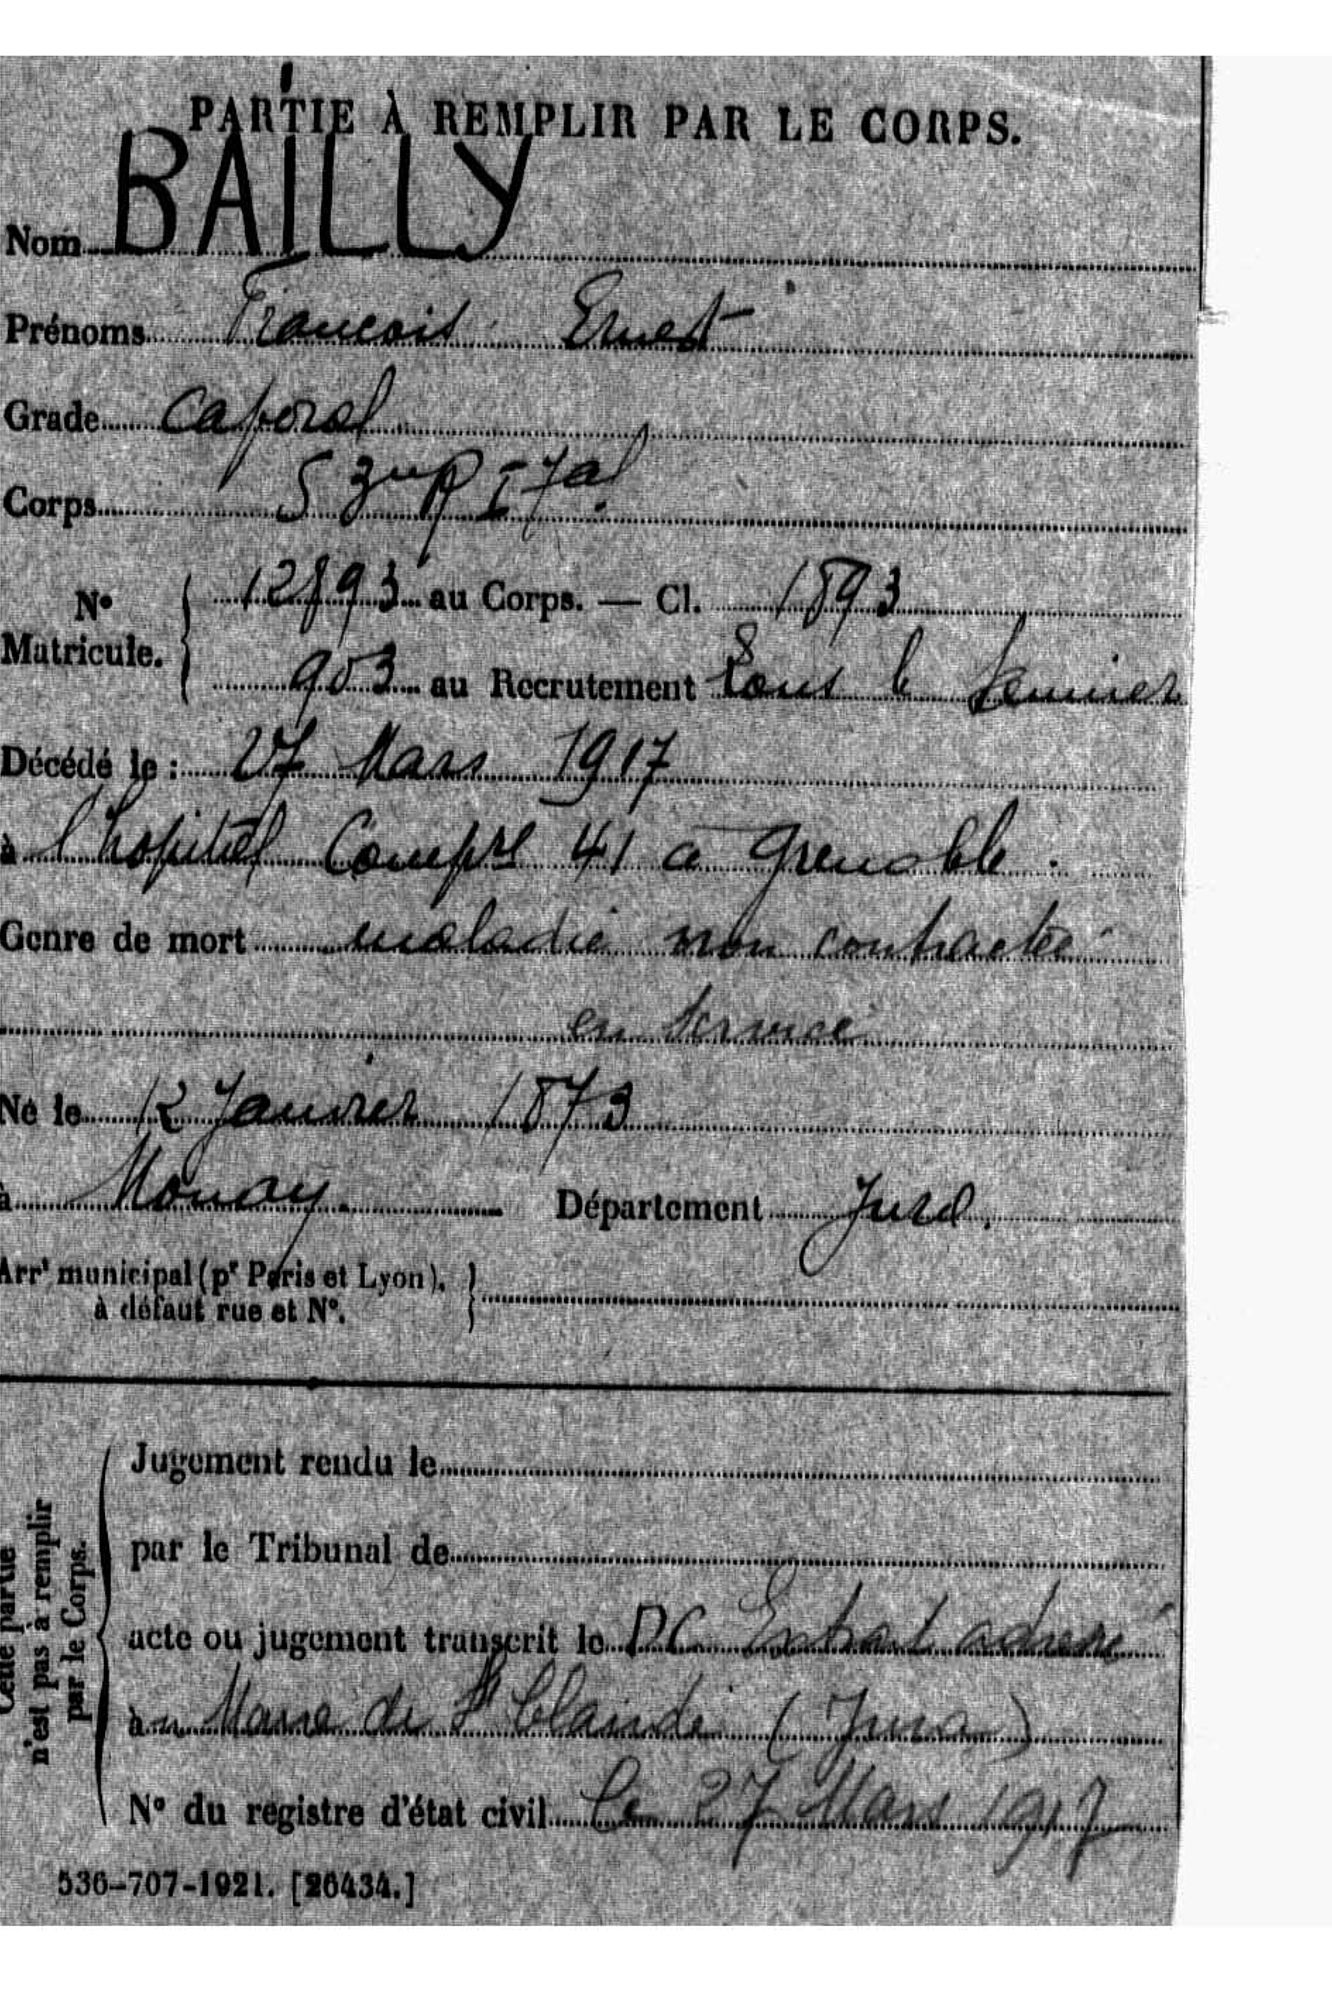 PARTIE À REMPLIR PAR LE CORPS.
Nom BAILLY
Prénoms Francois Ernest
Grade Caporal
Corps 53me R I Tal
Nº Matricule. 12893 au Corps. — Cl. 1893
903 au Recrutement Lons le Saunier
Décédé le : 27 Mars 1917
à l'hopital Compre 41 a Grenoble.
Genre de mort maladie non contractée
en service
Né le 12 Janvier 1873
à Mouay. Département Jura.
Arrt municipal (pr Paris et Lyon),
à défaut rue et Nº.
Cette partie
n'est pas à remplir
par le Corps.
Jugement rendu le
par le Tribunal de
acte ou jugement transcrit le DC Extrait adressé
à u Maire de St Claude (Jura)
Nº du registre d'état civil le 27 Mars 1917
536-707-1921. [26434.]